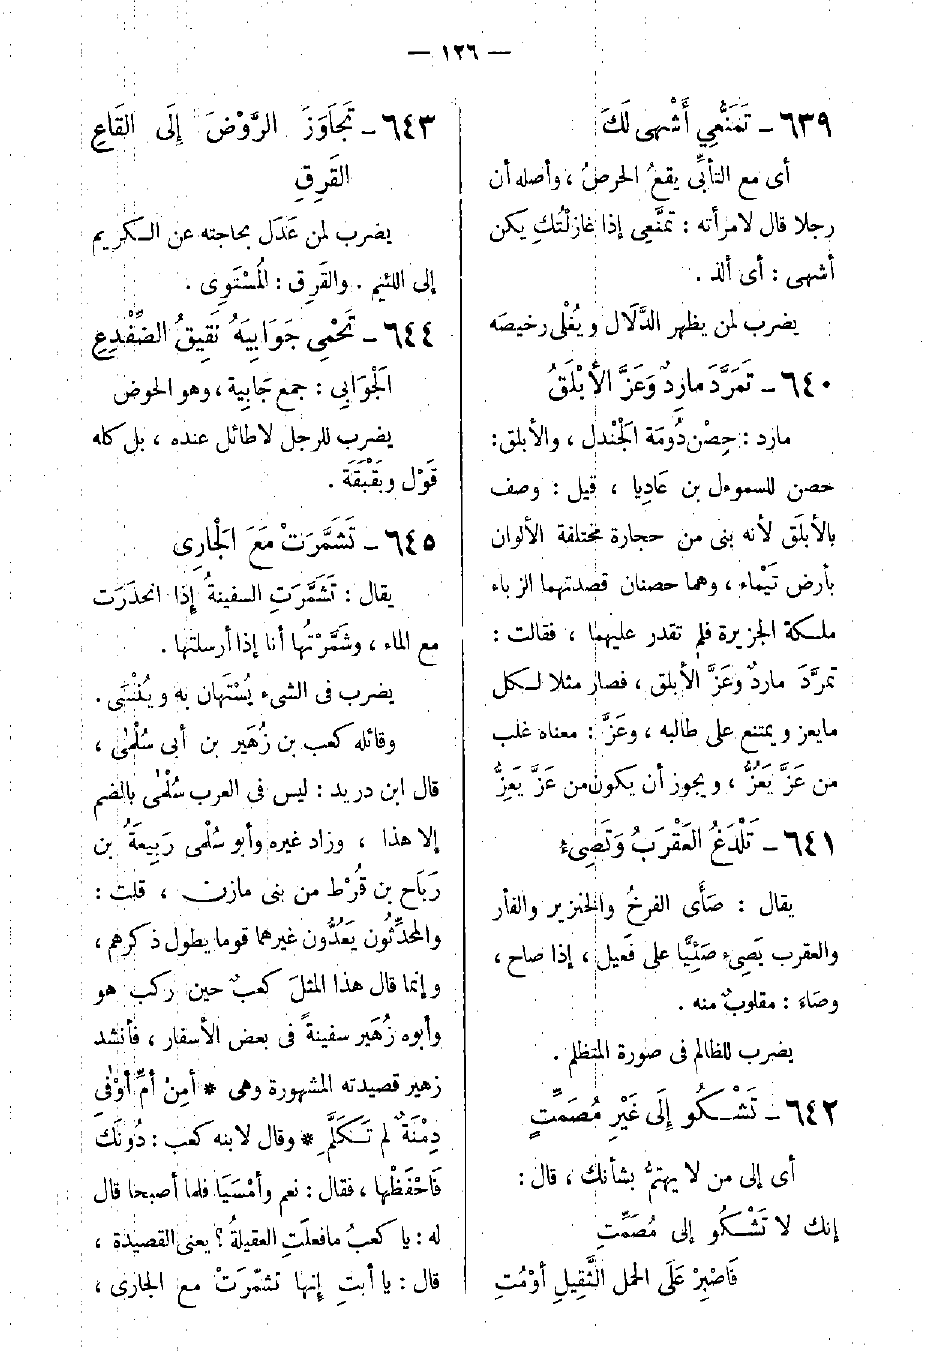 — ١٢٦ —
٦٣٩ – تَمَنَّعِي أَشْهى لَكَ
أى مع التأبِّى يقعُ الحرصُ ، وأصله أن
رجلا قال لامرأته : تمنَّعِى إذا غازلْتُكِ يكن
أشهى : أى ألذ .
يضرب لمن يظهر الدَّلَال ويُغْلى رخيصَه
٦٤٠ – تمَرَّدَ مارِدٌ وَعَزَّ الأبْلَقُ
مارد : حِصْن دُومَة الجْنَدل ، والأبلق :
حصن للسموءل بن عَاديا ، قيل : وصف
بالأبلَق لأنه بنى من حجارة مختلفة الألوان
بأرض تَيْماء ، وهما حصنان قصدتهما الزباء
ملكة الجزيرة فلم تقدر عليهما ، فقالت :
تمرَّدَ ماردٌ وعَزَّ الأبلق ، فصار مثلا لكل
مايعز ويمتنع على طالبه ، وعَزَّ : معناه غلب
من عَزَّ يَعُزُّ ، ويجوز أن يكون من عَزَّ يَعِزُّ
٦٤١ – تَلْدَغُ العَقْرَبُ وَتَصِىءُ
يقال : صَأى الفرخُ والخنزير والفأر
والعقرب يَصِىء صَئِيًّا على فَعيل ، إذا صاح ،
وصَاءَ : مقلوبٌ منه .
يضرب للظالم فى صورة المتظلم .
٦٤٢ – تَشْكُو إِلَى غَيْرِ مُصَمِّتٍ
أى إلى من لا يهتمُّ بشأنك ، قال :
إنك لا تَشْكُو إلى مُصَمِّتِ
فَاصْبِرْ عَلَى الحمل الثَّقِيلِ أوْمُتِ
٦٤٣ – تَجَاوَزَ الرَّوْضَ إِلَى القَاعِ
القَرِقِ
يضرب لمن عَدَل بحاجته عن الكريم
إلى اللئيم . والقَرِق : المُسْتَوِى .
٦٤٤ – تَحْمِى جَوَابِيَهُ نَقِيقُ الضِّفْدِعِ
الَجْوَابِى : جمع جَابية ، وهو الحوض
يضرب للرجل لاطائل عنده ، بل كله
قَوْل وبَقْبَقَة .
٦٤٥ – تَشَمَّرَتْ مَعَ الجَارِى
يقال : تَشَمَّرَتِ السفينةُ إذا انحدَرَت
مع الماء ، وشَمَّرْتُها أنا إذا أرسلتها .
يضرب فى الشىء يُسْتَهان به ويُنْسَى .
وقائله كعب بن زُهَير بن أبى سُلْمٰى ،
قال ابن دريد : ليس فى العرب سُلْمٰى بالضم
إلا هذا ، وزاد غيره وأبو سُلْمى رَبِيعَةُ بن
رَبَاح بن قُرْط من بنى مازن ، قلت :
والمحدِّثُون يَعُدُّون غيرهما قوما يطول ذكرهم ،
وإنما قال هذا المثلَ كعبٌ حين ركب هو
وأبوه زُهَير سفينةً فى بعض الأسفار ، فأنشد
زهير قصيدته المشهورة وهى * أمِنْ أمِّ أوْفٰى
دِمْنَةٌ لم تَكَلَّمِ * وقال لابنه كعب : دُونَكَ
فَاحْفَظْها ، فقال : نعم وأمْسَيَا فلما أصبحا قال
له : يا كعبُ مافعلَتِ العقيلةُ ؟ يعنى القصيدة ،
قال : يا أبتِ إنها تشمَّرَتْ مع الجارى ،